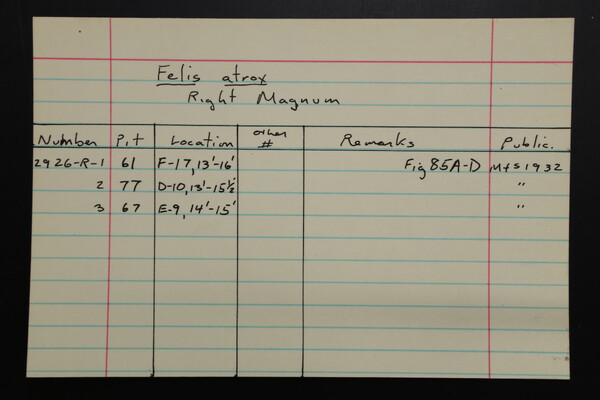 Felis atrox
Right Magnum
Number Pit Location other # Remarks Public.
2926-R-1 61 F-17, 13'-16' Fig 85A-D M+S 1932
2 77 D-10, 13'-15½' "
3 67 E-9, 14'-15' "